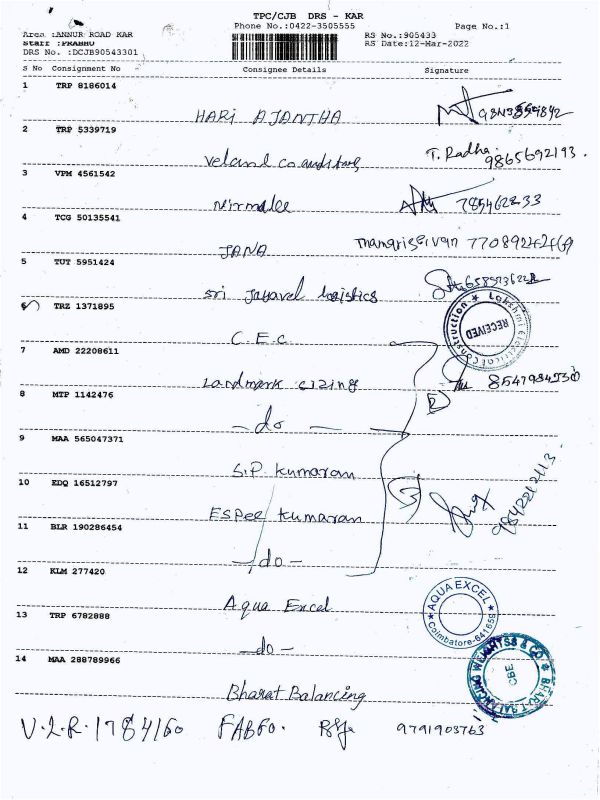 TPC/CJB DRS - KAR
Phone No.:0422-3505555 Page No.:1
Area :ANNUR ROAD KAR RS No.:905433
Staff :PRABHU RS Date:12-Mar-2022
DRS No. :DCJB90543301
S No Consignment No Consignee Details Signature
1 TRP 8186014
HARI AJANTHA
2 TRP 5339719
T. Radha 9865692193.
3 VPM 4561542
Nirmalee
4 TCG 50135541
JANA
5 TUT 5951424
Sri Jayavel logistics
6 TRZ 1371895
C.E.C
Lakshmi Electrical Construction ★ RECEIVED
7 AMD 22208611
Landmark cizing
8 MTP 1142476
-do-
2
9 MAA 565047371
S.P. Kumaran
10 EDQ 16512797
3
ESPee Kumaran
9842212113
11 BLR 190286454
-do-
12 KLM 277420
Aqua Excel
★ AQUA EXCEL ★ Coimbatore-641659
13 TRP 6782888
-do-
14 MAA 288789966
Bharat Balancing
BHARAT BALANCING WEIGHTSS & CO ★ CBE
V.L.R. 1784160 FABFO. 9791903763